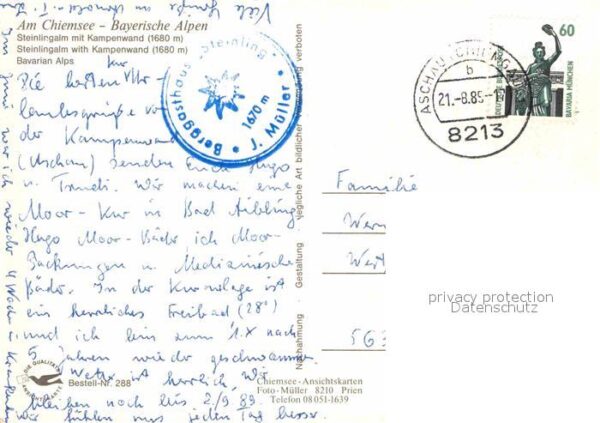 Am Chiemsee – Bayerische Alpen
Steinlingalm mit Kampenwand (1680 m)
Steinlingalm with Kampenwand (1680 m)
Bavarian Alps
Die besten Ur-
laubsgrüße von
der Kampenwand
(Aschau) senden Euch Hugo
u. Traudi. Wir machen eine
Moor-Kur in Bad Aibling
Hugo Moor-Bäder, ich Moor-
Packungen u. Medizinische
Bäder. In der Kuranlage ist
ein herrliches Freibad (28°)
und ich bin zum 1.x nach
5 Jahren wieder geschwommen.
Wetter ist herrlich, Wir
bleiben noch bis 2/9 89.
wir fühlen uns jeden Tag besser.
Viele
Im Juni war ich wieder 4 Wochen im
Berggasthaus "Steinling"
1670 m
J. Müller
ASCHAU
b
21.-8.89-1
8213
60
DEUTSCHE BUNDESPOST
BAVARIA MÜNCHEN
Familie
Wern
Wert
563
privacy protection
Datenschutz
DIE QUALITÄTS
ANSICHTSKARTE
Bestell-Nr. 288
Chiemsee-Ansichtskarten
Foto-Müller 8210 Prien
Telefon 08051-1639
Nachahmung Gestaltung jegliche Art bildlicher Verwendung verboten